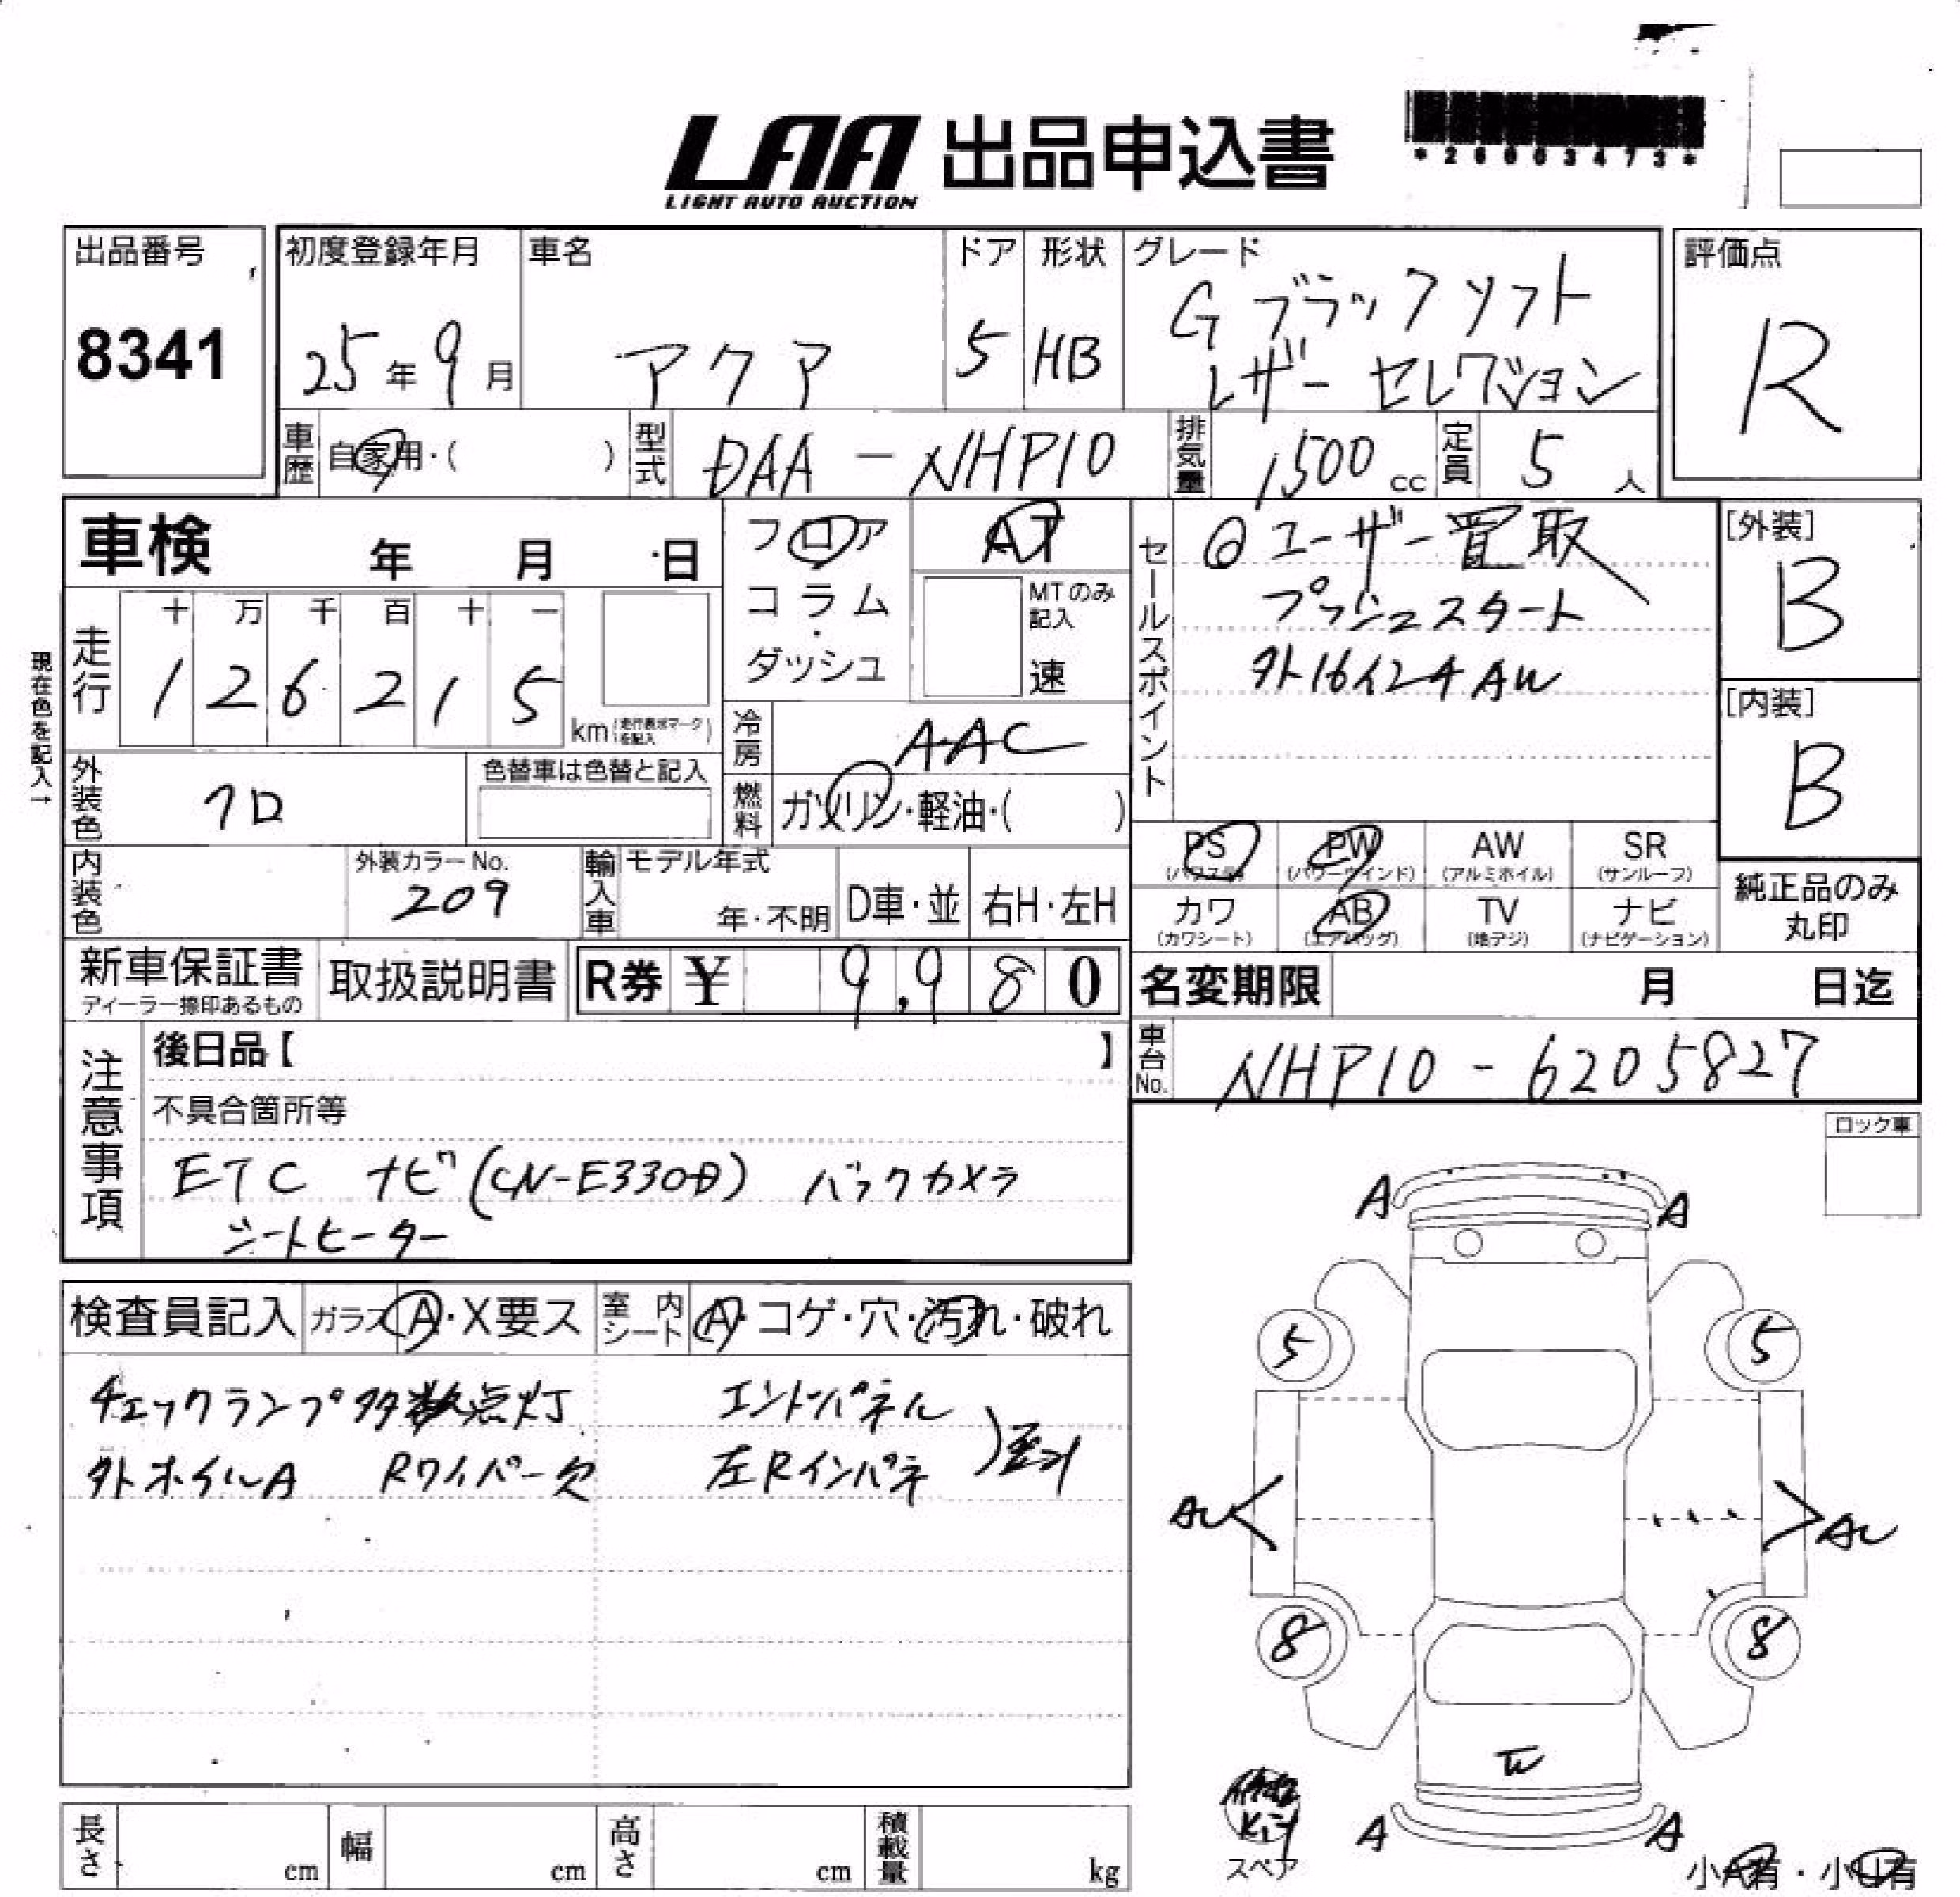 LAA 出品申込書
LIGHT AUTO AUCTION
*26003473*
出品番号
8341
初度登録年月
25年9月
車名
アクア
ドア
5
形状
HB
グレード
G ブラックソフト
レザーセレクション
評価点
R
車歴 自家用・( )
型式 DAA-NHP10
排気量 1500 cc
定員 5 人
車検 年 月 日
フロア
コラム・
ダッシュ
AT
MTのみ記入
速
セールスポイント
◎ユーザー買取
プッシュスタート
外16インチAW
[外装]
B
[内装]
B
現在色を記入→
走行
十 万 千 百 十 一
1 2 6 2 1 5
km(走行表示マークを記入)
冷房 AAC
外装色 クロ
色替車は色替と記入
燃料 ガソリン・軽油・( )
内装色
外装カラーNo.
209
輸入車
モデル年式
年・不明
D車・並
右H・左H
PS (パワステ)
PW (パワーウインド)
AW (アルミホイル)
SR (サンルーフ)
カワ (カワシート)
AB (エアバッグ)
TV (地デジ)
ナビ (ナビゲーション)
純正品のみ丸印
新車保証書
ディーラー捺印あるもの
取扱説明書
R券 ¥ 9,980
名変期限 月 日迄
車台No. NHP10-6205827
注意事項
後日品【 】
不具合箇所等
ETC ナビ(CN-E330D) バックカメラ
シートヒーター
ロック車
検査員記入
ガラス A・X要ス
室内シート A・コゲ・穴・汚れ・破れ
チェックランプ多数点灯
外ホイルA Rワイパー欠
エンドパネル
左Rインパネ
A A
5 5
AU AU
8 8
W
A A
スペア
小A有・小U有
長さ cm
幅 cm
高さ cm
積載量 kg